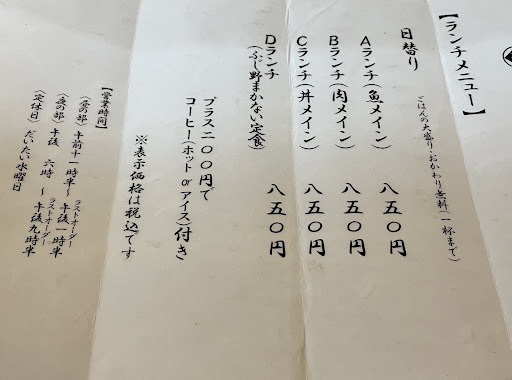 【ランチメニュー】
ごはんの大盛り・おかわり無料(一杯まで)
日替り
Aランチ(魚メイン) 八五〇円
Bランチ(肉メイン) 八五〇円
Cランチ(丼メイン) 八五〇円
Dランチ
(ふじ野まかない定食) 八五〇円
プラス二〇〇円で
コーヒー(ホットorアイス)付き
※表示価格は税込です
【営業時間】
〈昼の部〉 午前十一時半~ラストオーダー午後一時半
〈夜の部〉 午後 六時 ~ラストオーダー午後九時半
〈定休日〉 だいたい水曜日